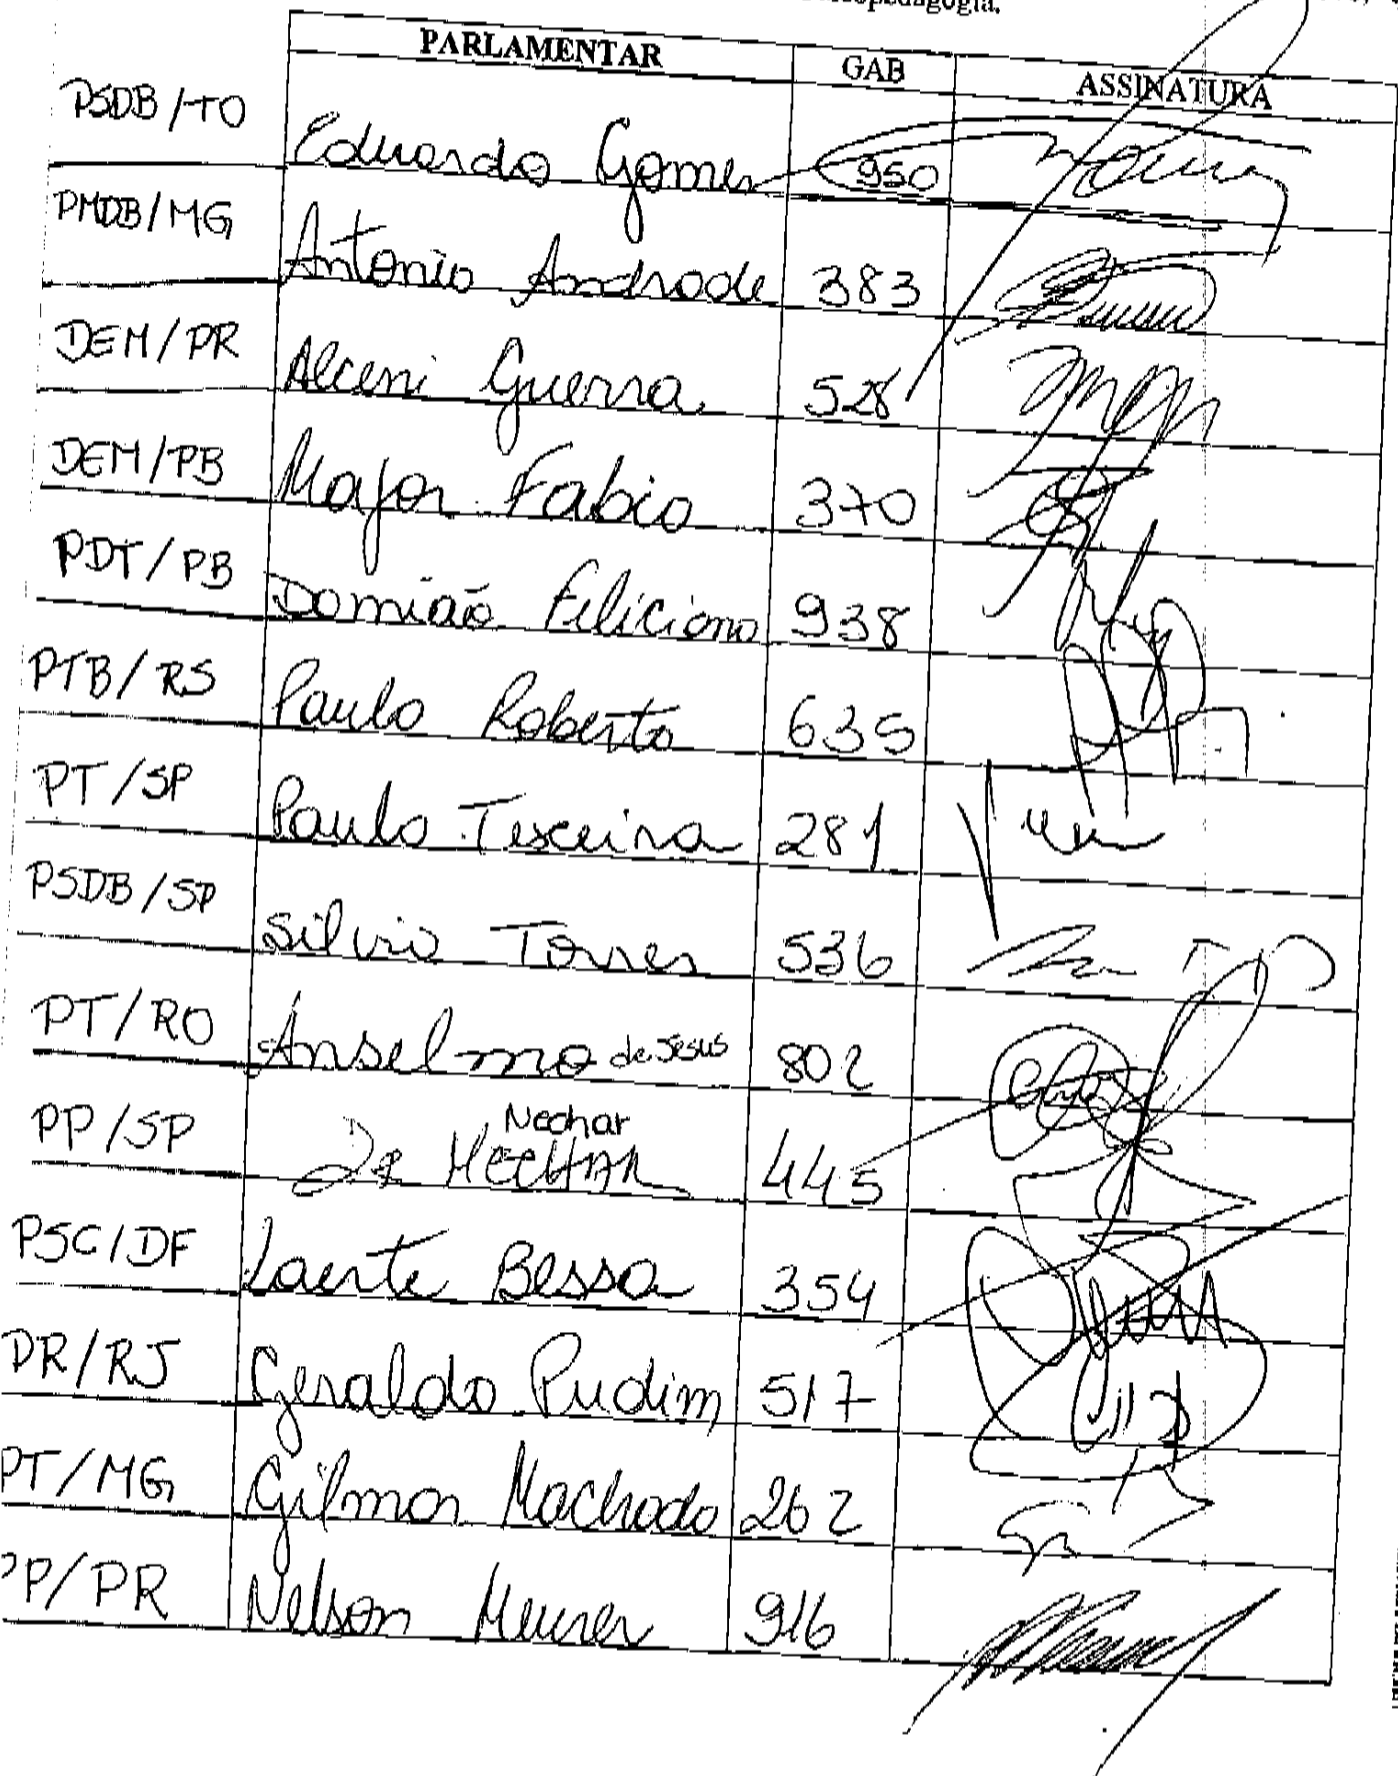 PARLAMENTAR GAB ASSINATURA
PSDB/TO Eduardo Gomes 950
PMDB/MG Antonio Andrade 383
DEM/PR Alceni Guerra 528
DEM/PB Major Fabio 370
PDT/PB Damião Feliciano 938
PTB/RS Paulo Roberto 635
PT/SP Paulo Teixeira 281
PSDB/SP Silvio Torres 536
PT/RO Anselmo de Jesus 802
Nechar
PP/SP Dr NECHAR 445
PSC/DF Laerte Bessa 354
PR/RJ Geraldo Pudim 517
PT/MG Gilmar Machado 262
PP/PR Nelson Meurer 916